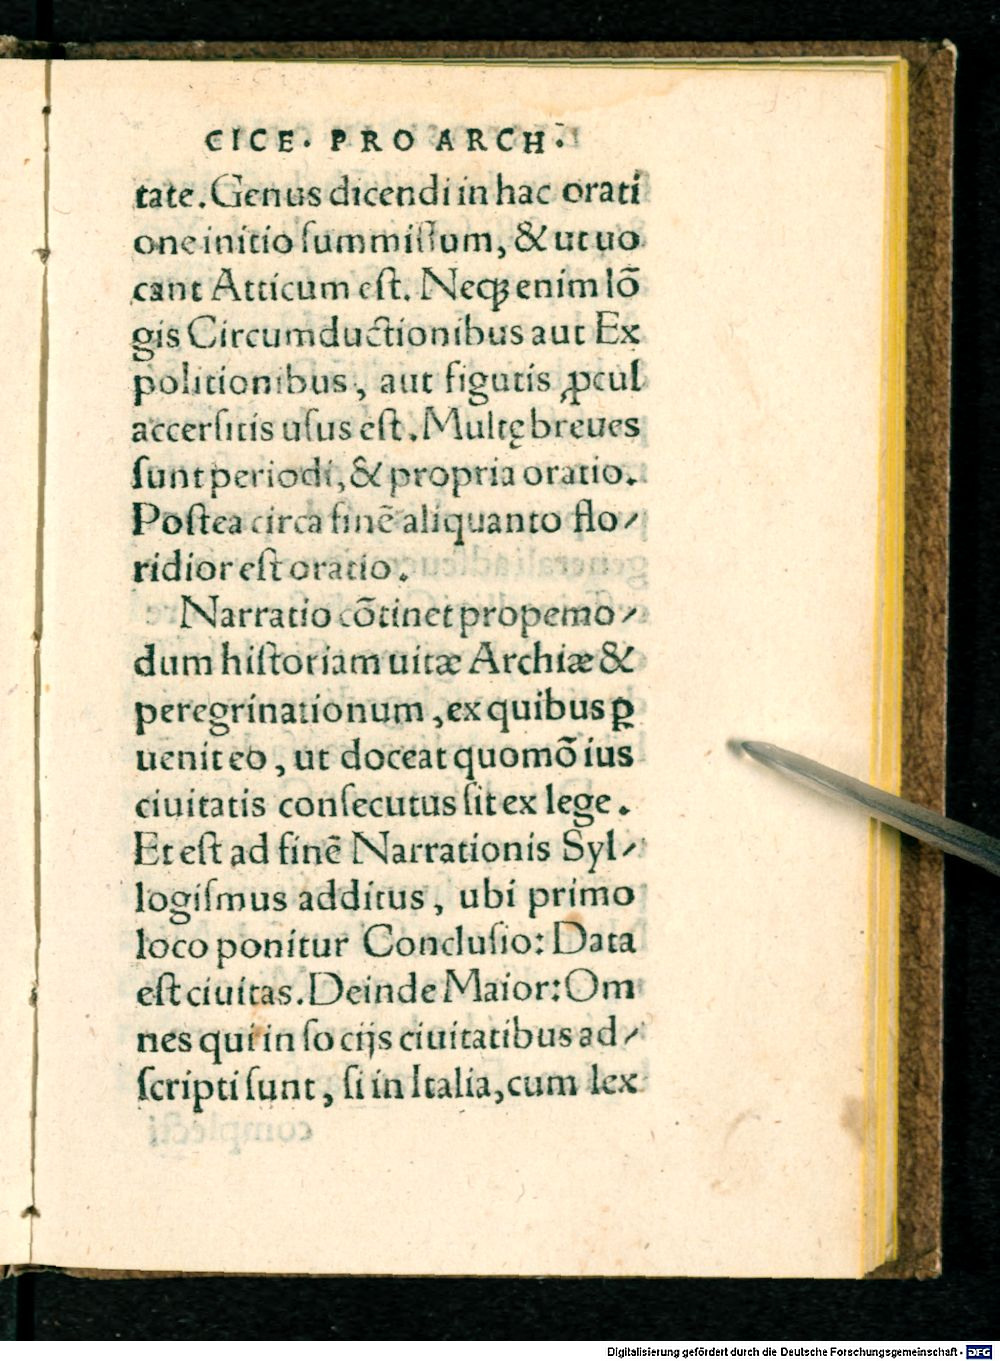 CICE. PRO ARCH.
tate. Genus dicendi in hac orati
one initio ſummiſſum, & ut uo
cant Atticum eſt. Neqꝫ enim lõ
gis Circumductionibus aut Ex
politionibus, aut figutis ꝓcul
accerſitis uſus eſt. Multę breues
ſunt periodi, & propria oratio.
Poſtea circa finẽ aliquanto flo⸗
ridior eſt oratio.
Narratio cõtinet propemo⸗
dum hiſtoriam uitæ Archiæ &
peregrinationum, ex quibus ꝑ
uenit eo, ut doceat quomõ ius
ciuitatis conſecutus ſit ex lege.
Et eſt ad finẽ Narrationis Syl⸗
logiſmus additus, ubi primo
loco ponitur Concluſio: Data
eſt ciuitas. Deinde Maior: Om
nes qui in ſocijs ciuitatibus ad⸗
ſcripti ſunt, ſi in Italia, cum lex
Digitalisierung gefördert durch die Deutsche Forschungsgemeinschaft - DFG